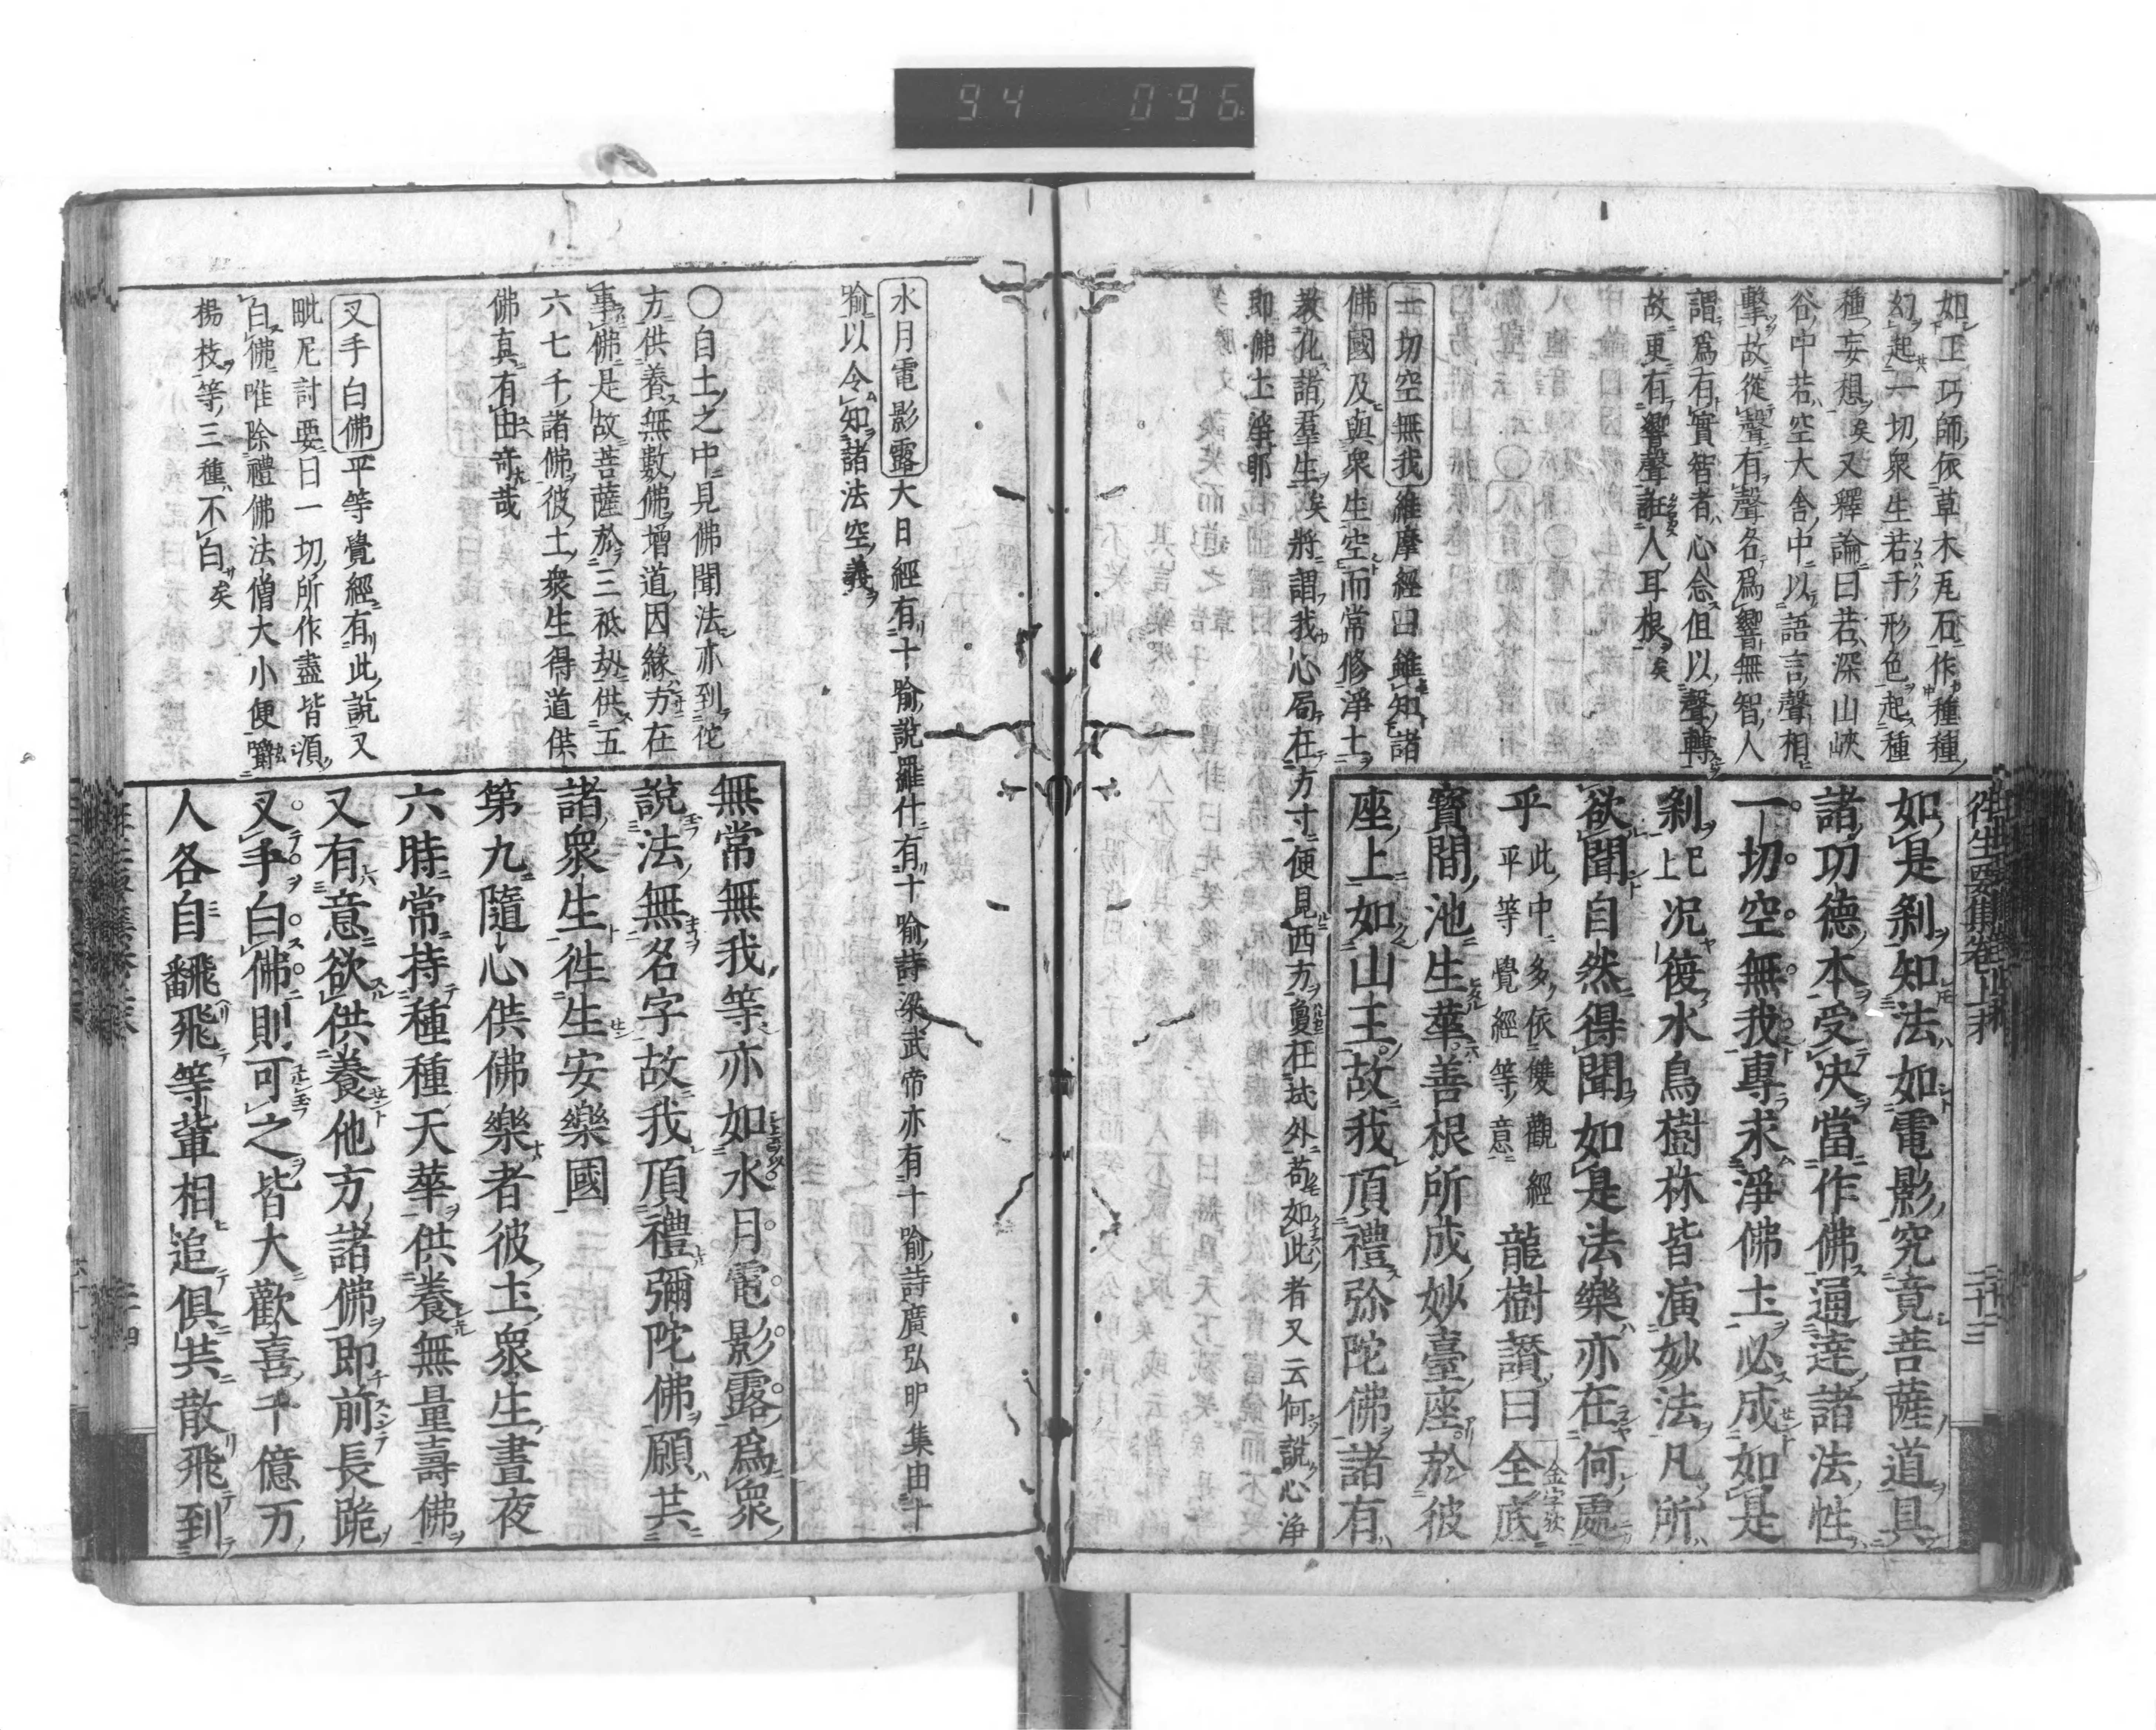 94 096
如工巧師依草木瓦石作種種
幻起一切衆生若干形色起種
種妄想矣又釋論曰若深山峽
谷中若空大舍中以語言聲相
擊故從聲有聲名爲響無智人
謂爲有實智者心念但以聲轉
故更有響聲誑人耳根矣
一切空無我維摩經曰雖知諸
佛國及與衆生空而常修淨土
教化諸羣生矣將謂我心局在方寸便見西方敻在域外苟如此者又云何說心淨
即佛土淨耶
往生要集卷上末
二十三
如是刹知法如電影究竟菩薩道具
諸功德本受决當作佛通達諸法性
一切空無我專求淨佛土必成如是
刹已上况復水鳥樹林皆演妙法凡所
欲聞自然得聞如是法樂亦在何處
乎此中多依雙觀經
平等覺經等意龍樹讚曰全底
金字欤
寶間池生華善根所成妙臺座於彼
座上如山王故我頂禮弥陀佛諸有
水月電影露大日經有十喻說羅什有十喻詩梁武帝亦有十喻詩廣弘明集由十
喻以令知諸法空義
〇自土之中見佛聞法亦到佗
方供養無數佛增道因緣方在
事佛是故菩薩於三祇劫供五
六七千諸佛彼土衆生得道供
佛真有由奇哉
叉手白佛平等覺經有此說又
毗尼討要曰一切所作盡皆須
白佛唯除禮佛法僧大小便嚼
楊枝等三種不白矣
無常無我等亦如水月電影露爲衆
說法無名字故我頂禮彌陀佛願共
諸衆生徃生安樂國
第九隨心供佛樂者彼土衆生晝夜
六時常持種種天華供養無量壽佛
又有意欲供養他方諸佛即前長跪
叉手白佛則可之皆大歡喜千億万
人各自翻飛等輩相追俱共散飛到